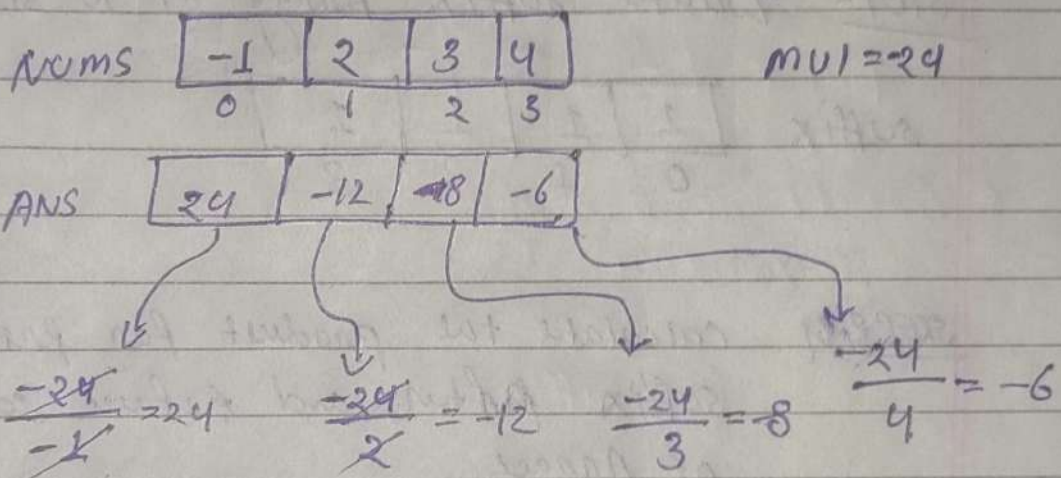 NUMS -1 2 3 4 MUl = -24
0 1 2 3
ANS 24 -12 -8 -6
-24/-1 = 24 -24/2 = -12 -24/3 = -8 -24/4 = -6